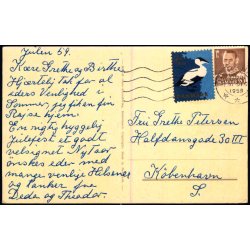 Julen 59.
Kære Grethe og Birthe
Hjertelig Tak for al
eders Venlighed i
Sommer, jeg fik en fin
Rejse hjem.
En rigtig hyggelig
Julefest et godt
velsignet Nytaar
ønskes eder med
mange venlige Hilsener
og tanker fra
Deda og Theodor.
Frú Grethe Petersen
Halfdansgade 30 III
København
S.
1959